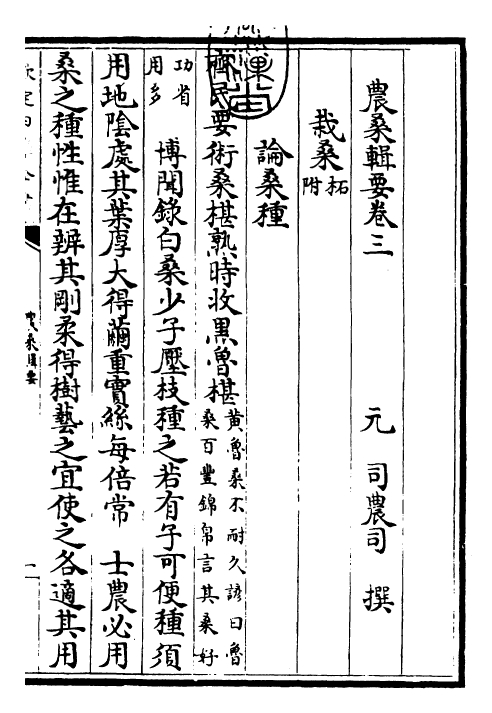 農桑輯要卷三
元 司農司 撰
栽桑 柘附
論桑種
齊民要術桑椹熟時收黑魯椹 黃魯桑不耐久諺曰魯桑百豐錦帛言其桑好
功省用多 博聞錄白桑少子壓枝種之若有子可便種須
用地陰處其葉厚大得繭重實絲每倍常 士農必用
桑之種性惟在辨其剛柔得樹藝之宜使之各適其用
農桑輯要